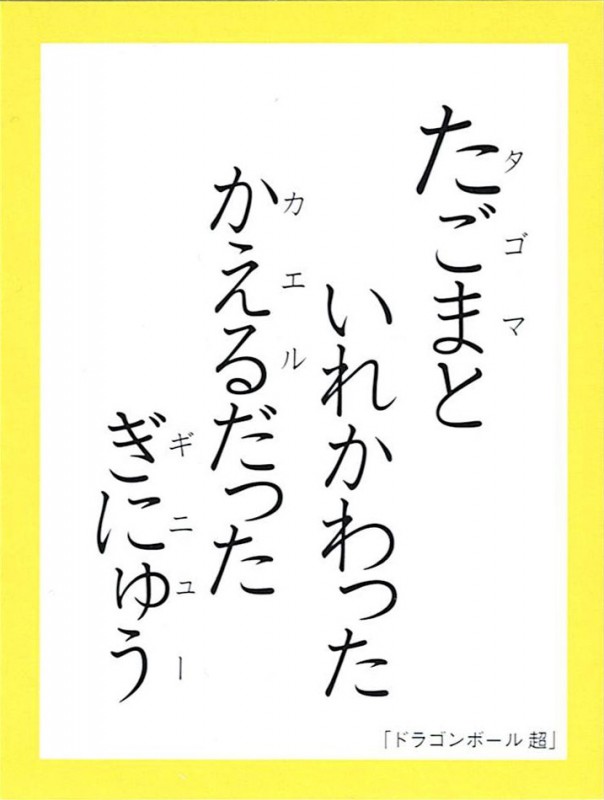 たごまと
タゴマ
いれかわった
かえるだった
カエル
ぎにゅう
ギニュー
「ドラゴンボール 超」